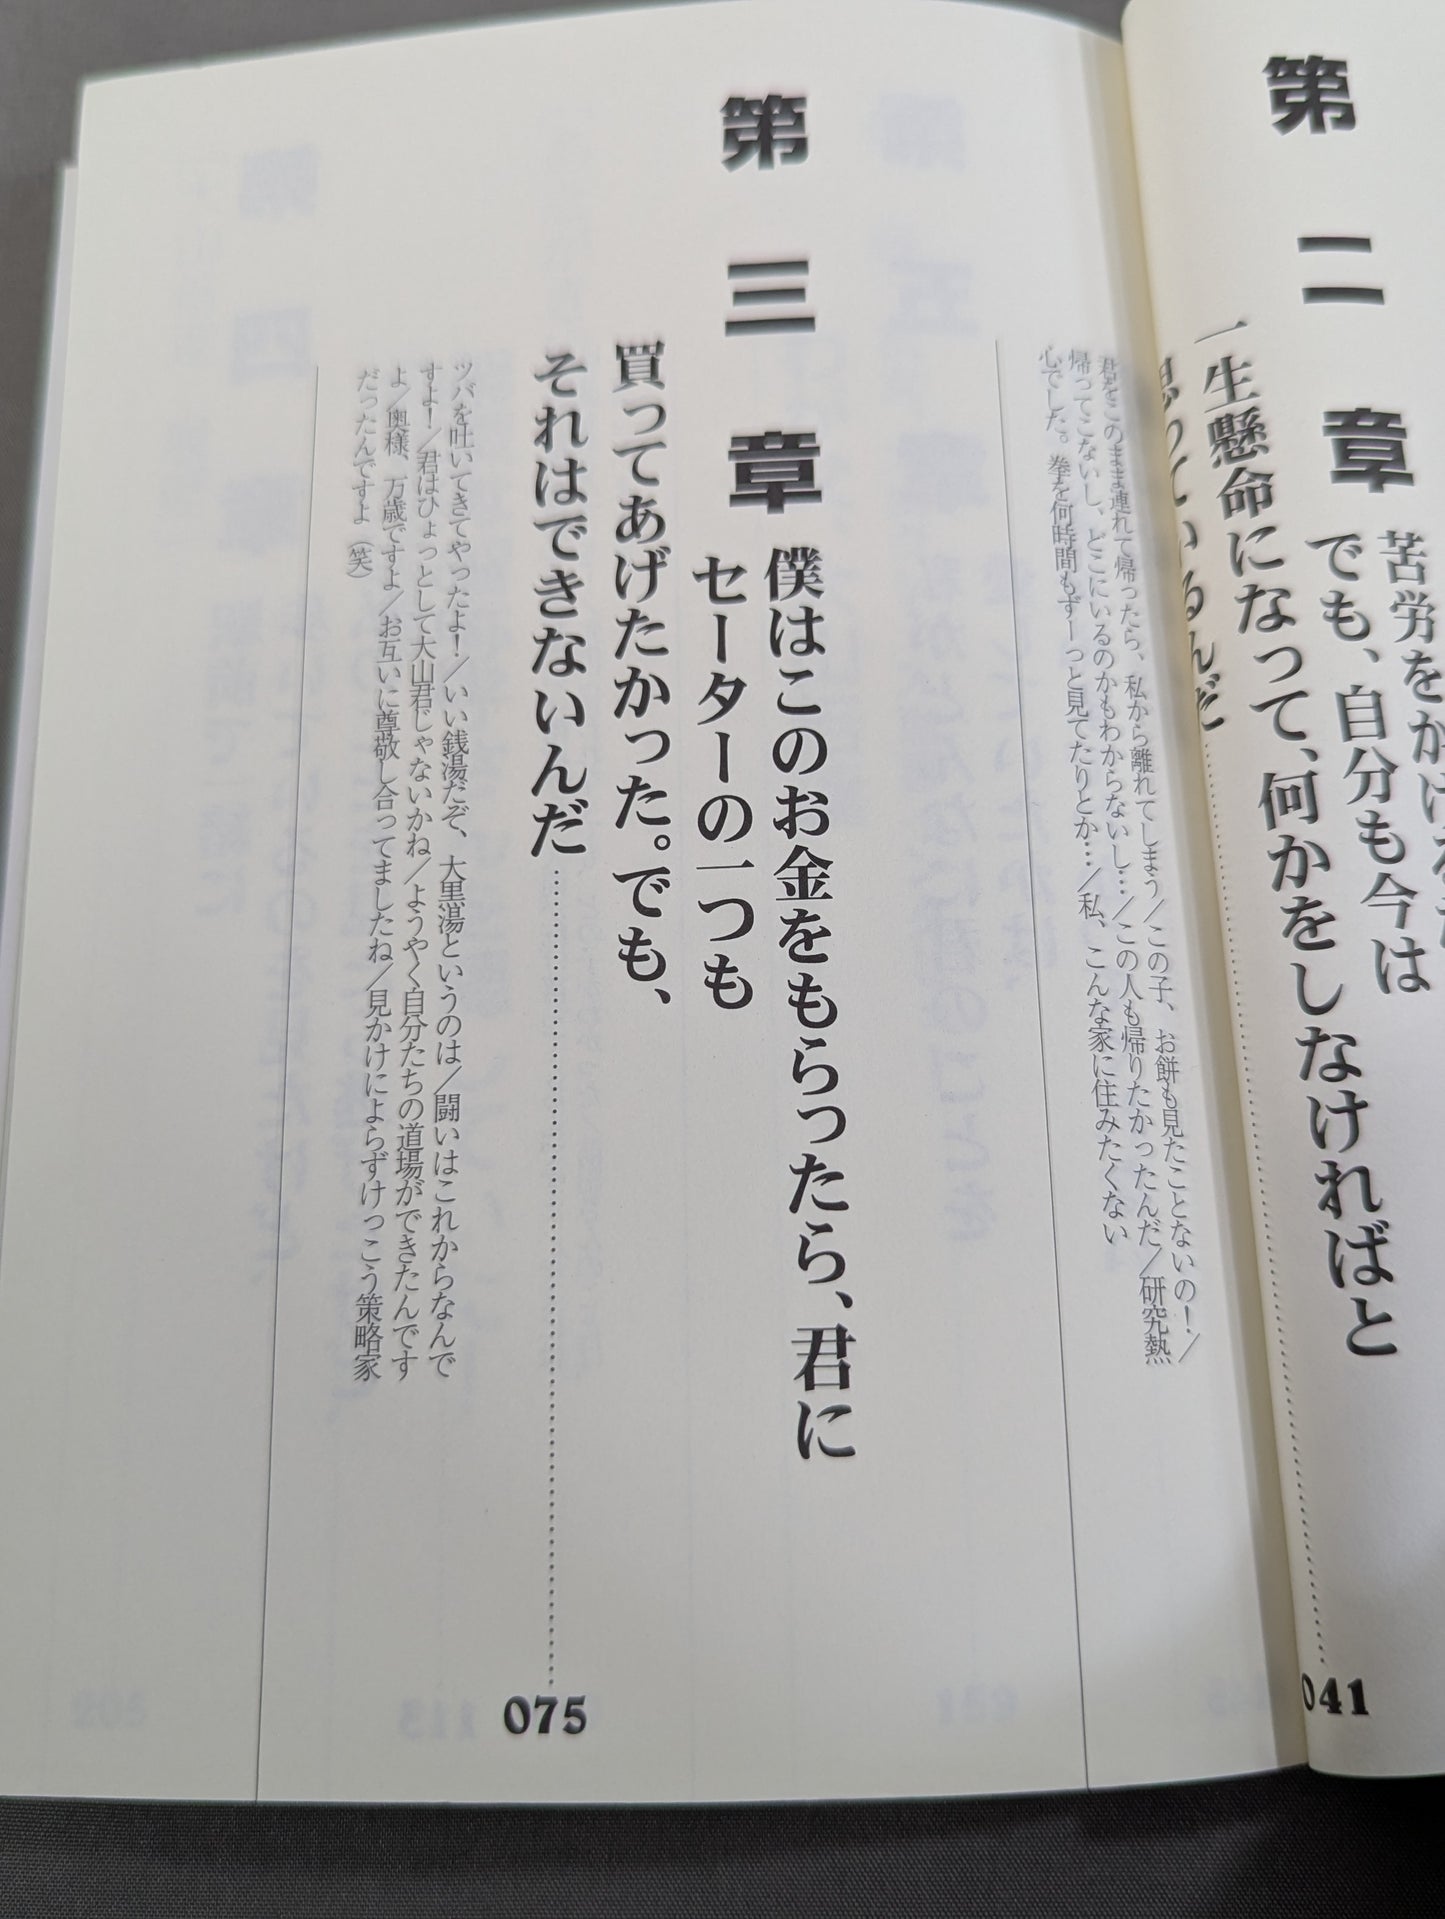 第二章
苦労をかける
でも、自分も今は
一生懸命になって、何かをしなければと
思っているんだ
041
君をこのまま連れて帰ったら、私から離れてしまう／この子、お餅も見たことないの！／
帰ってこないし、どこにいるのかもわからないし…／この人も帰りたかったんだ／研究熱
心でした。拳を何時間もずーっと見てたりとか…／私、こんな家に住みたくない
第三章
僕はこのお金をもらったら、君に
セーターの一つも
買ってあげたかった。でも、
それはできないんだ
075
ツバを吐いてきてやったよ！／いい銭湯だぞ、大黒湯というのは／闘いはこれからなんで
すよ！／君はひょっとして大山君じゃないかね／ようやく自分たちの道場ができたんです
よ／奥様、万歳ですよ／お互いに尊敬し合ってましたね／見かけによらずけっこう策略家
だったんですよ（笑）